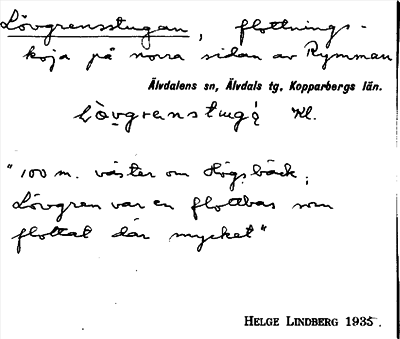 Lövgrensstugan, flottnings-
koja på norra sidan av Rymman
Älvdalens sn, Älvdals tg, Kopparbergs län.
Lòvgrenstugą Kl.
"100 m. väster om Högsbäck;
Lövgren var en flottbas som
flottat där mycket"
HELGE LINDBERG 1935.